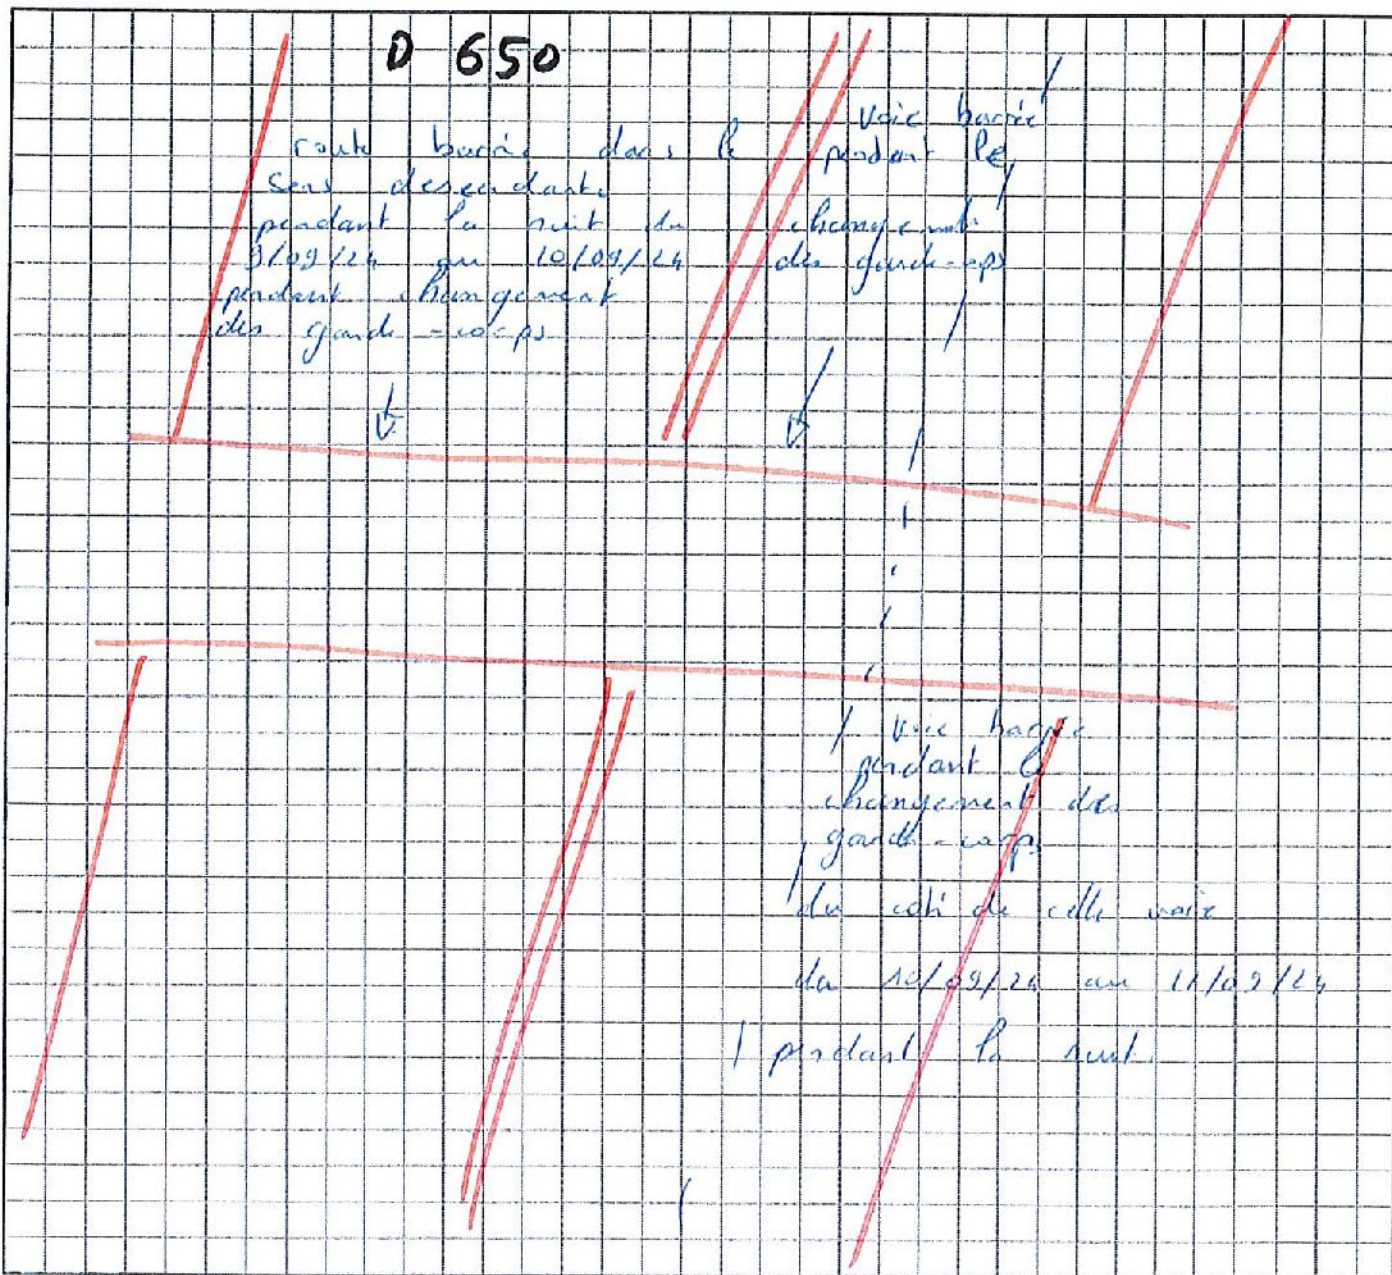 D 650
route barrée dans le
sens descendant
pendant la nuit du
9/09/24 au 10/09/24
pendant changement
des garde-corps
voie barrée
pendant le
changement
des garde-cps
voie barrée
pendant le
changement des
garde-corps
du coté de cette voie
du 10/09/24 au 11/09/24
pendant la nuit